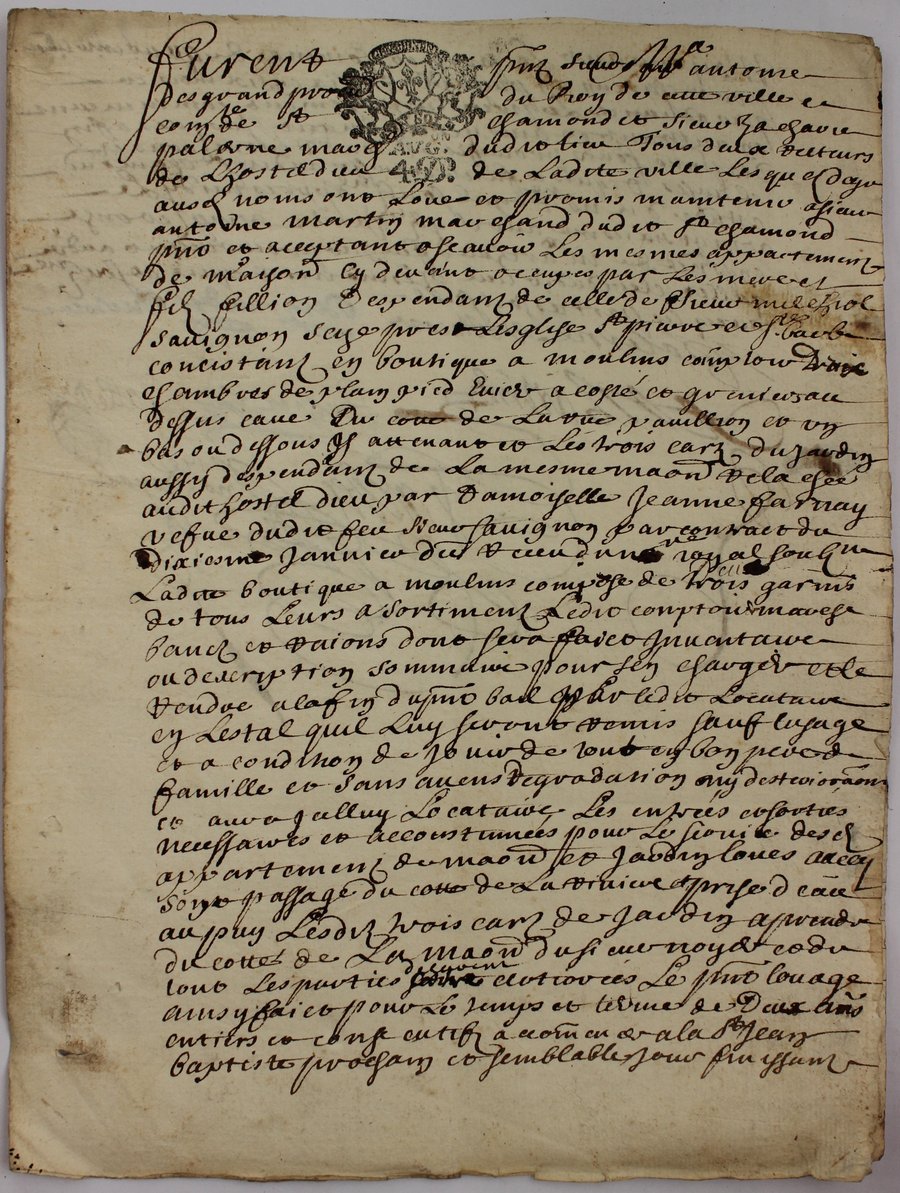 Furent pnts sieurs Me antoine
desgrand pro du Roy de cette ville et
comté de St chamond et sieur Zacharie
palerne march dudit lieu Tous deux Recteurs
de Lhostel dieu de Ladite ville Lesquels
ausd noms ont Loué et promis maintenir a sieur
antoine martin marchand dudit St chamond
pnt et acceptant a scavoir Les mesmes appartements
de maison cy devant occupes par Les mere et
fils fillion Despendantz de celle de sieur melchiol
sauvignon scize pres Lesglise St pierre et Ste barbe
concistantz en boutique a moulins comptoir Trois
chambres de plain pied Evier a costé et greniers au
dessus cave Du coté de La rue pavillion et un
bas au dessous Jl attenant et Les trois cartz du Jardin
aussy despendantz de La mesme maon Relachée
audit hostel dieu par Damoiselle Jeanne farnay
vefue dudit feu sieur sauvignon par contract du
dixiesme Janvier dernier Receu du nore royal soubzne
Ladite boutique a moulins composé de trois garnis
de tous Leurs asortimentz Ledit comptoir
bancz et Raions dont sera faict Jnventaire
ou description sommaire pour sen charger et le
Rendre a la fin du pnt bail par ledit Locataire
en Lestat quil Luy seront Remis sauf lusage
et a condition de Jouir de tout en bon pere de
famille et sans aucuns degradation ny desterioraon
et aura Jcelluy Locataire Les entrées et sorties
necessaires et accoustumées pour Le service desd
appartementz de maon et Jardin loués avecq
son passage du cotté de La Riviere et prise deau
au puy Lesditz trois cartz de Jardin a prendre
du cotté de La maon du sieur noyer et du
tout Les parties cottoiées Le pnt louage
ainsy faict pour Le temps et terme de Deux ans
entiers et consecutifz a commencer a la St Jean
baptiste prochain et semblable Jour finissant
AVG.